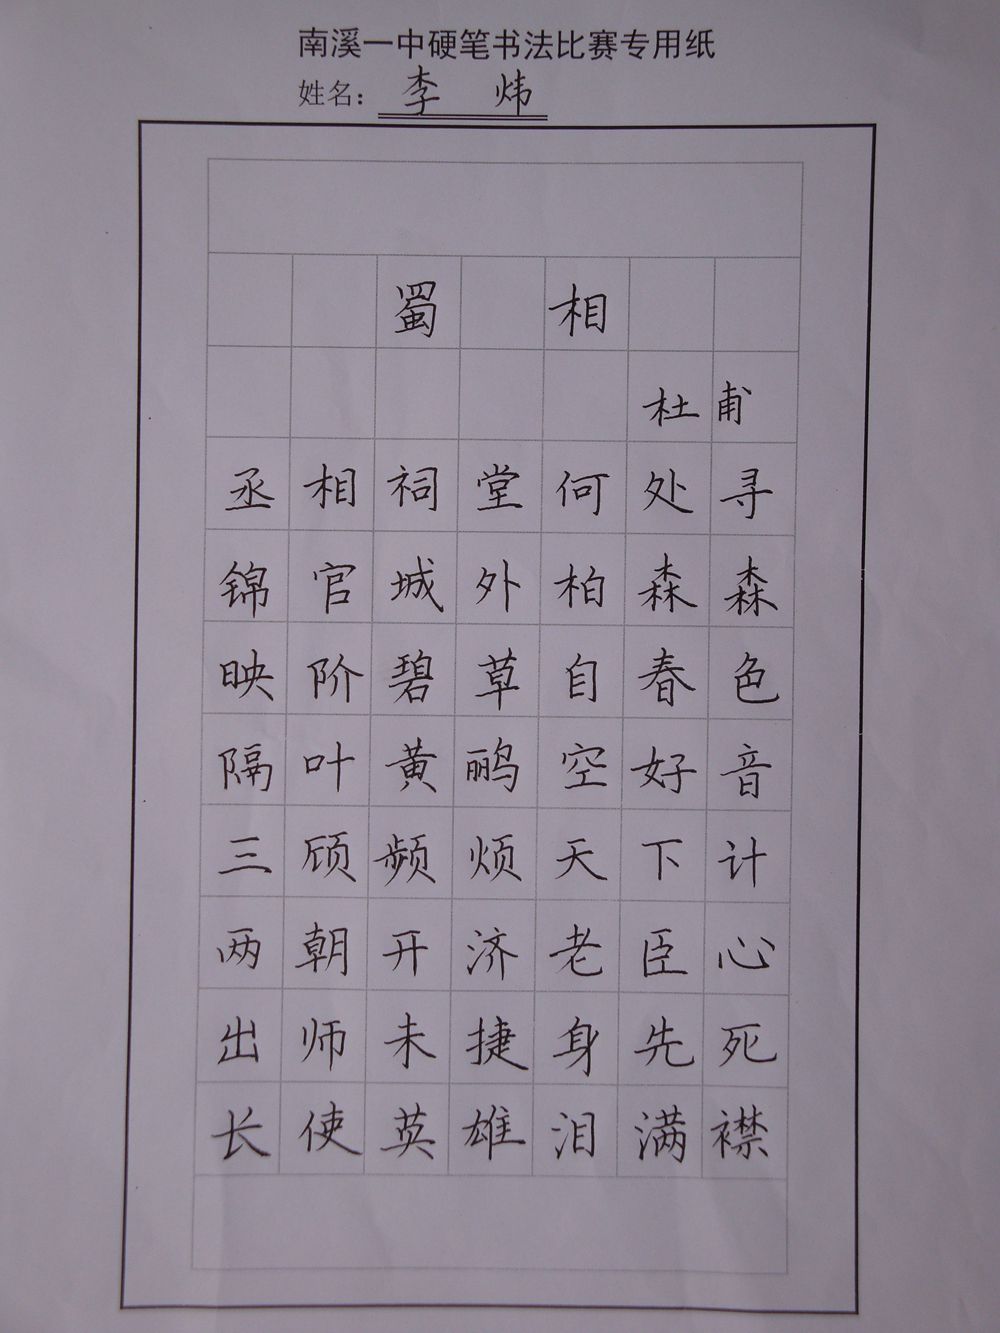 南溪一中硬笔书法比赛专用纸
姓名：李 炜
蜀 相
杜甫
丞相祠堂何处寻
锦官城外柏森森
映阶碧草自春色
隔叶黄鹂空好音
三顾频烦天下计
两朝开济老臣心
出师未捷身先死
长使英雄泪满襟